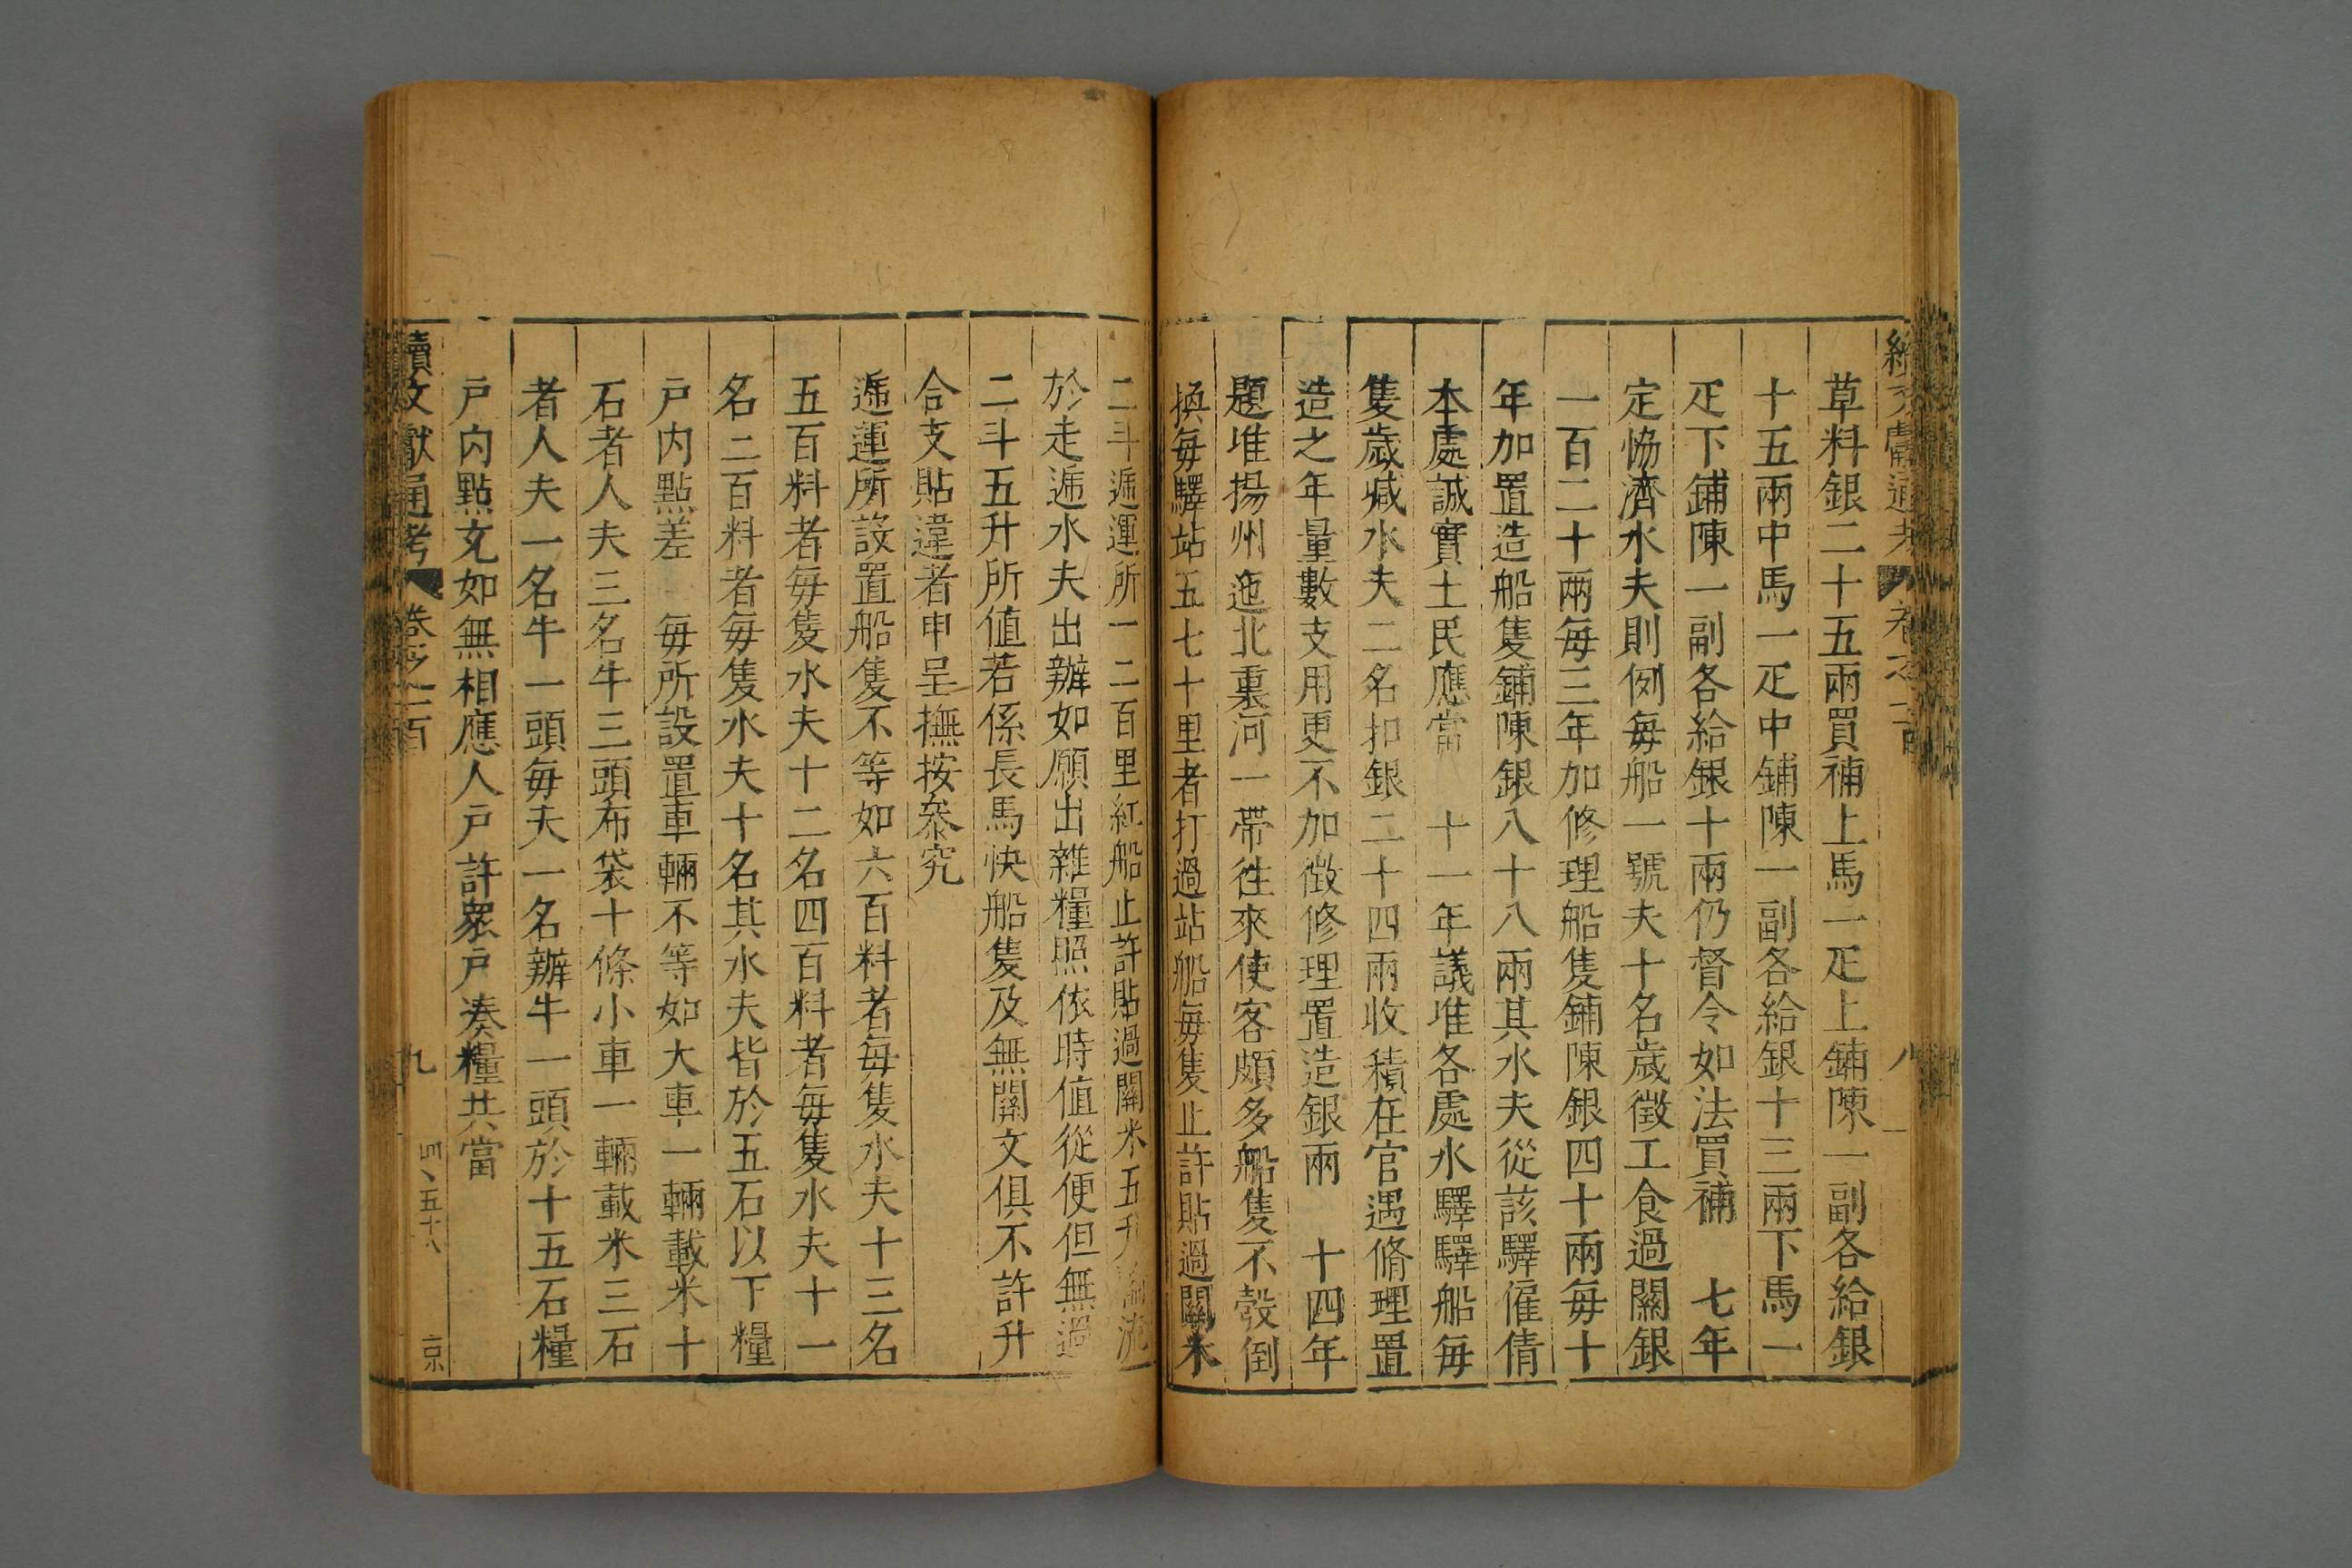 草料銀二十五兩買補上馬一疋上鋪陳一副各給銀
十五兩中馬一疋中鋪陳一副各給銀十三兩下馬一
疋下鋪陳一副各給銀十兩仍督令如法買補 七年
定恊濟水夫則例每船一號夫十名歲徵工食過關銀
一百二十兩每三年加修理船隻鋪陳銀四十兩每十
年加置造船隻鋪陳銀八十八兩其水夫從該驛僱倩
本處誠實土民應當 十一年議准各處水驛驛船每
隻歲減水夫二名扣銀二十四兩收積在官遇脩理置
造之年量數支用更不加徵修理置造銀兩 十四年
題准揚州迤北裏河一帶徃來使客頗多船隻不彀倒
換每驛站五七十里者打過站船每隻止許貼過關米
二斗逓運所一二百里紅船止許貼過關米五升
於走逓水夫出辦如願出雜糧照依時值從便但無過
二斗五升所值若係長馬快船隻及無關文俱不許升
合支貼違者申呈撫按叅究
逓運所設置船隻不等如六百料者每隻水夫十三名
五百料者每隻水夫十二名四百料者每隻水夫十一
名二百料者每隻水夫十名其水夫皆於五石以下糧
戶內點差 每所設置車輛不等如大車一輛載米十
石者人夫三名牛三頭布袋十條小車一輛載米三石
者人夫一名牛一頭每夫一名辦牛一頭於十五石糧
戶內點充如無相應人戶許衆戶湊糧共當
續文獻通考 卷之一百 九 四、五十八 京